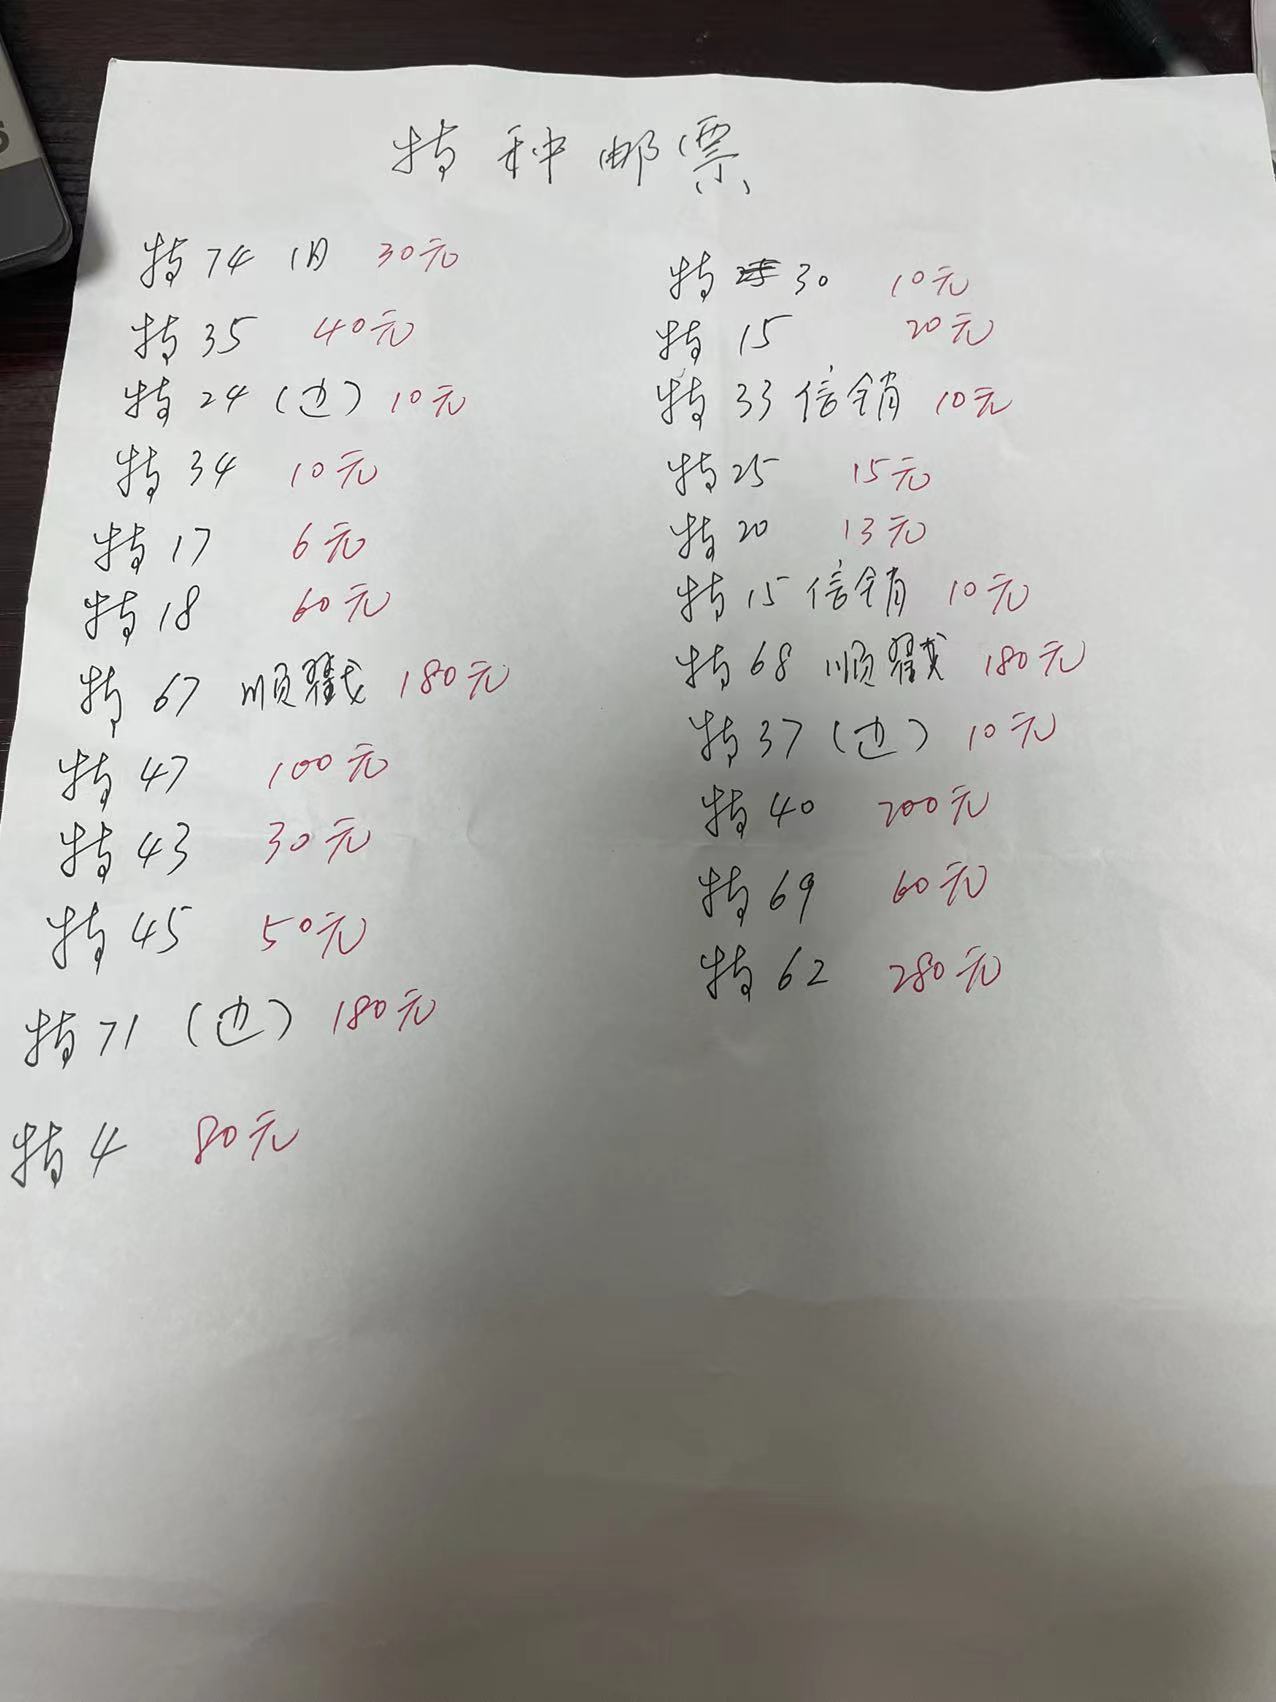 特种邮票
特74 旧 30元
特35 40元
特24（边）10元
特34 10元
特17 6元
特18 60元
特67 顺戳 180元
特47 100元
特43 30元
特45 50元
特71（边）180元
特4 80元
特30 10元
特15 20元
特33 信销 10元
特25 15元
特20 13元
特15 信销 10元
特68 顺戳 180元
特37（边）10元
特40 200元
特69 60元
特62 280元